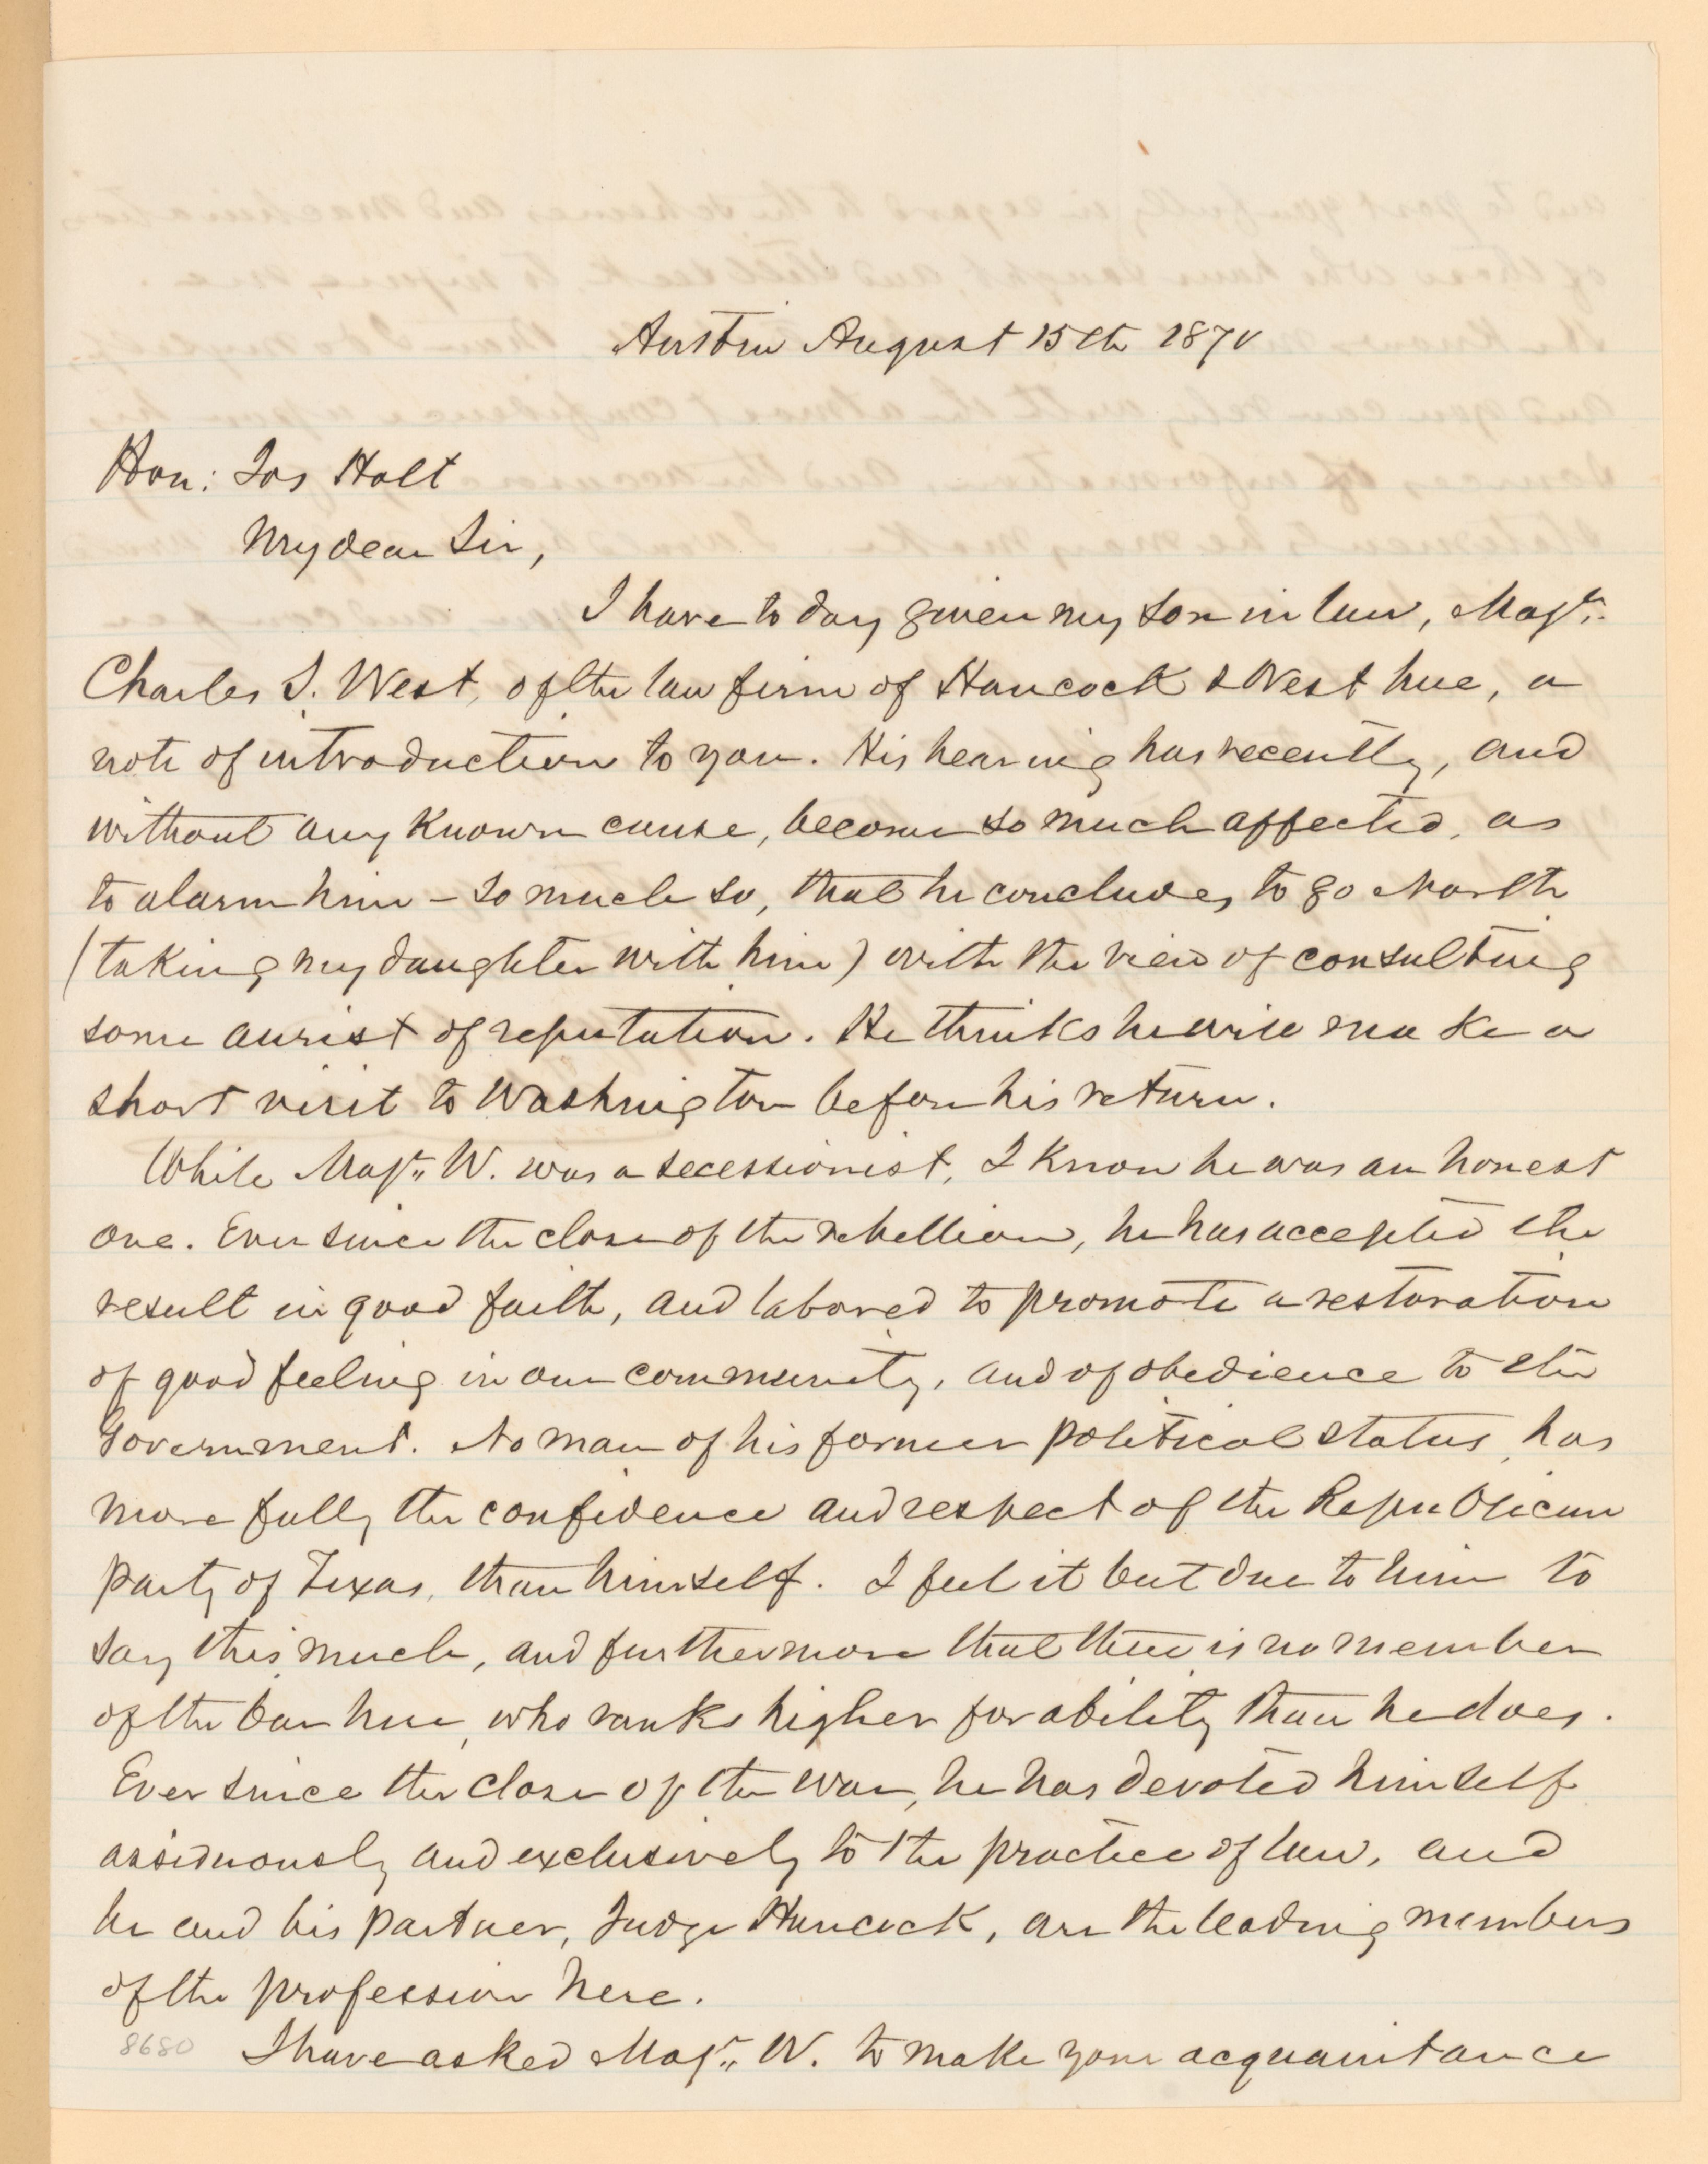 Austin August 15th 1870
Hon: Jos Holt
My dear Sir,
I have to day given my son in law, Majr.
Charles S. West, of the law firm of Hancock & West here, a
note of introduction to you. His hearing has recently, and
without any known cause, become so much affected, as
to alarm him – so much so, that he concludes to go North
(taking my daughter with him) with the view of consulting
some aurist of reputation. He thinks he will make a
short visit to Washington before his return.
While Majr. W. was a secessionist, I know he was an honest
one. Ever since the close of the rebellion, he has accepted the
result in good faith, and labored to promote a restoration
of good feeling in our community, and of obedience to the
Government. No man of his former political status, has
more fully the confidence and respect of the Republican
party of Texas, than himself. I feel it but due to him to
say this much, and furthermore that there is no member
of the bar here, who ranks higher for ability than he does.
Ever since the close of the war, he has devoted himself
assiduously and exclusively to the practice of law, and
he and his partner, Judge Hancock, are the leading members
of the profession here.
8680 I have asked Majr. W. to make your acquaintance